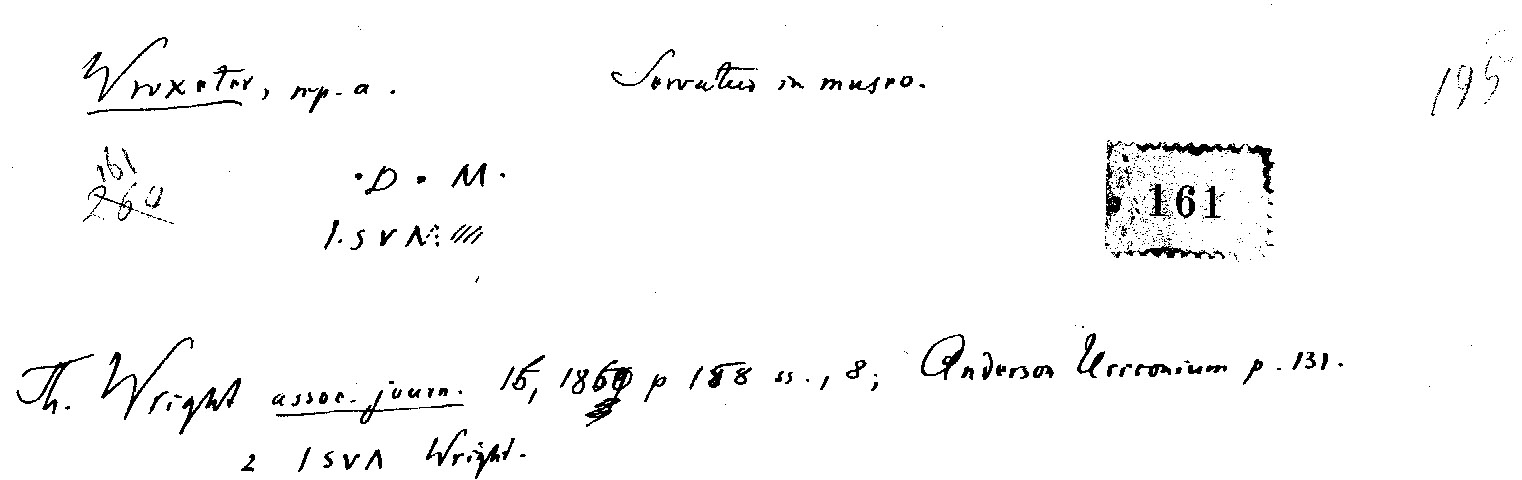 Wroxeter, rep. a. Servatur in museo. 195
161
260
· D · M ·
I · S V M ////
161
Th. Wright assoc. journ. 15, 1859 p 158 ss., 8; Anderson Uriconium p. 131.
2 I S V Λ Wright.